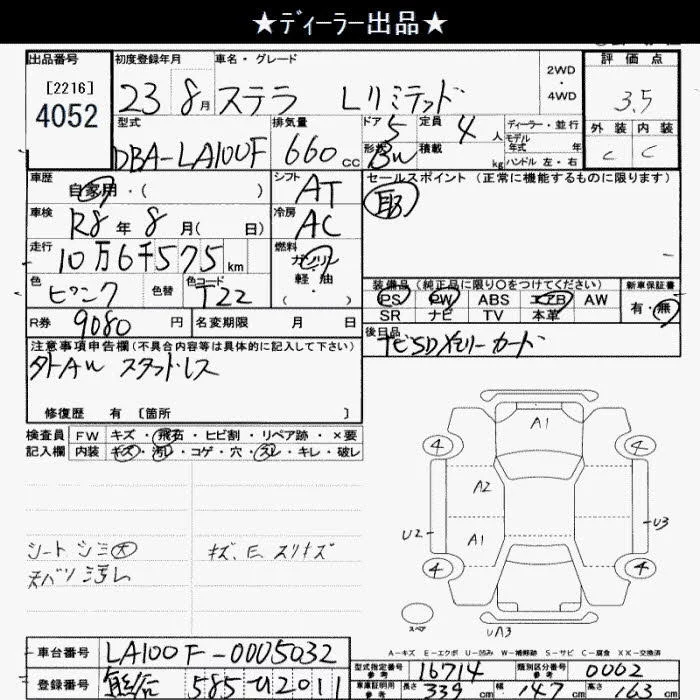 ★ディーラー出品★
出品番号 初度登録年月 車名・グレード 2WD・4WD 評価点
[2216]
4052
23 8月 ステラ Lリミテッド 3.5
型式 排気量 ドア 定員 ディーラー・並行 外装 内装
DBA-LA100F 660cc 5 4人 モデル年式 年 C C
形状 積載 kg ハンドル 左・右
車歴 自家用・( ) シフト AT セールスポイント (正常に機能するものに限ります)
車検 R8年8月( 日) 冷房 AC 取
走行 10万6千575km 燃料 ガソリン
軽油
・
( )
色 ピンク 色替 色コード T22 装備品 (純正品に限り○をつけてください) 新車保証書
PS PW ABS エアB AW 有・無
SR ナビ TV 本革
R券 9080円 名変期限 月 日 後日品
ナビSDメモリーカード
注意事項申告欄 (不具合内容等は具体的に記入して下さい)
外AW スタッドレス
修復歴 有 [箇所 ]
検査員 FW キズ・飛石・ヒビ割・リペア跡・×要
記入欄 内装 キズ・汚レ・コゲ・穴・スレ・キレ・破レ
A1
4 4
A2
U2 A1 U3
4 4
スペア UA3
シート シミ大 キズ、E、スリキズ
天バリ汚レ
A-キズ E-エクボ U-凹み W-補修跡 S-サビ C-腐食 XX-交換済
車台番号 LA100F-0005032
型式指定番号 参考 16714 類別区分番号 参考 0002
登録番号 585 2011
車庫証明用 参考 長さ 339cm 幅 147cm 高さ 163cm